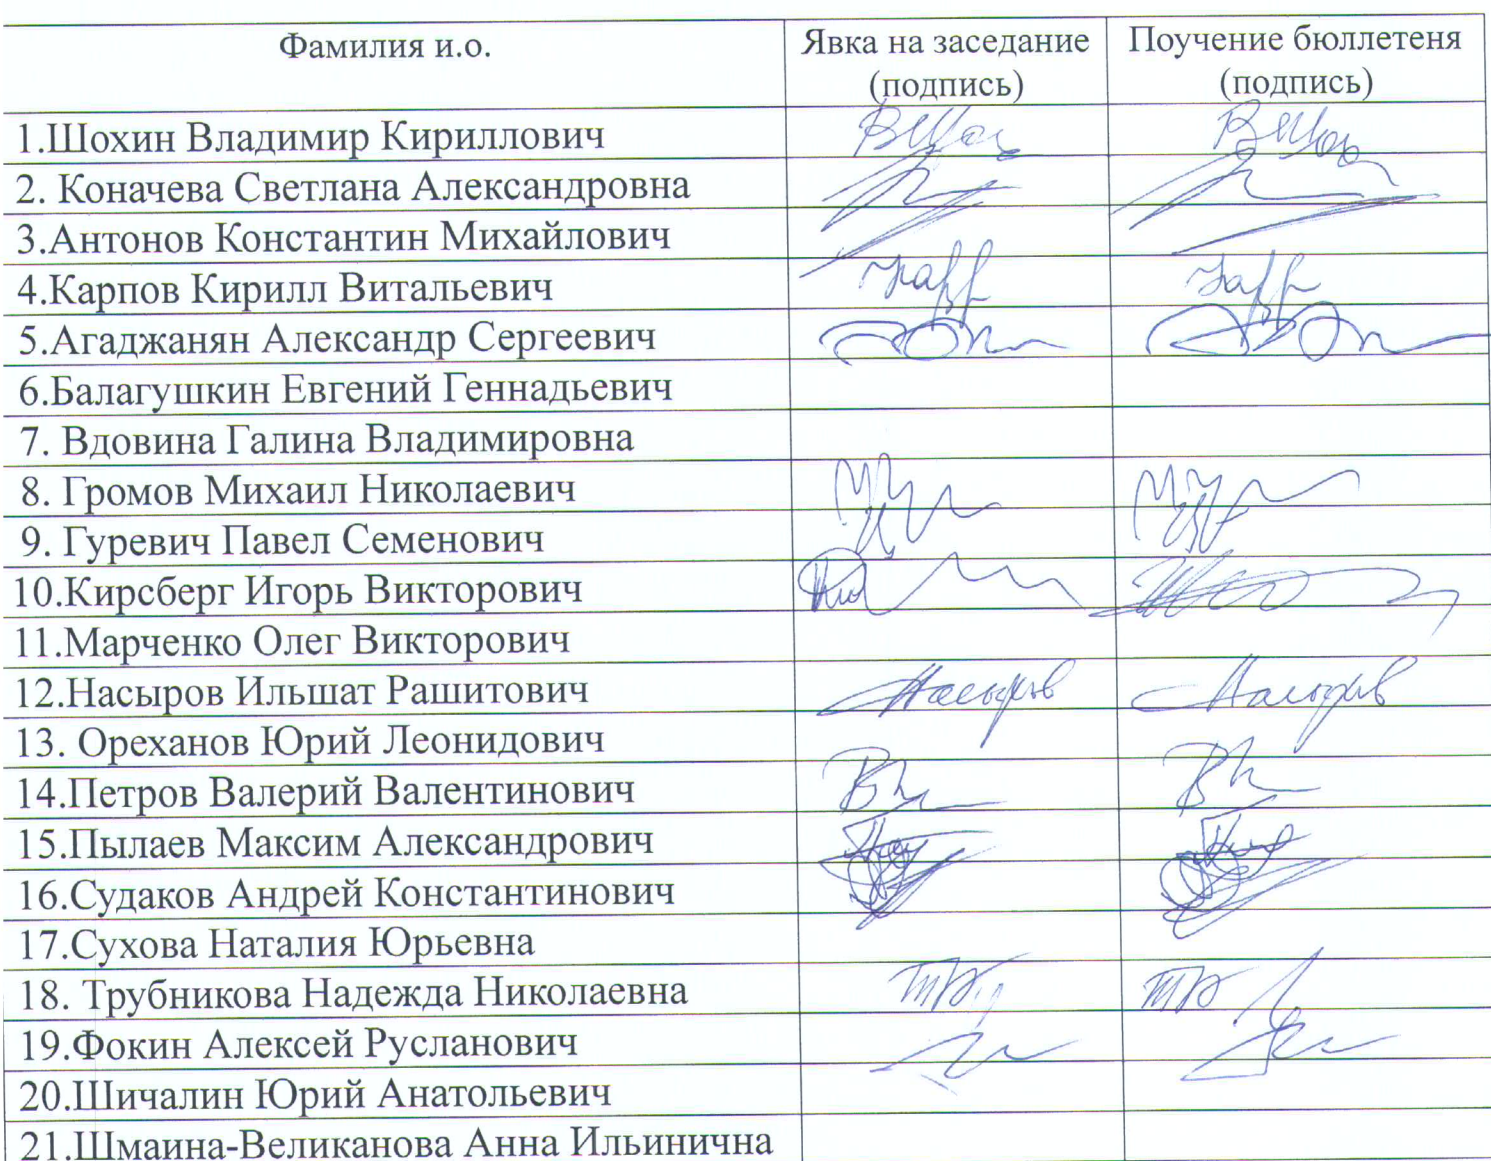 Фамилия и.о. Явка на заседание Поучение бюллетеня
(подпись) (подпись)
1.Шохин Владимир Кириллович
2. Коначева Светлана Александровна
3.Антонов Константин Михайлович
4.Карпов Кирилл Витальевич
5.Агаджанян Александр Сергеевич
6.Балагушкин Евгений Геннадьевич
7. Вдовина Галина Владимировна
8. Громов Михаил Николаевич
9. Гуревич Павел Семенович
10.Кирсберг Игорь Викторович
11.Марченко Олег Викторович
12.Насыров Ильшат Рашитович Насыров Насыров
13. Ореханов Юрий Леонидович
14.Петров Валерий Валентинович
15.Пылаев Максим Александрович
16.Судаков Андрей Константинович
17.Сухова Наталия Юрьевна
18. Трубникова Надежда Николаевна
19.Фокин Алексей Русланович
20.Шичалин Юрий Анатольевич
21.Шмаина-Великанова Анна Ильинична